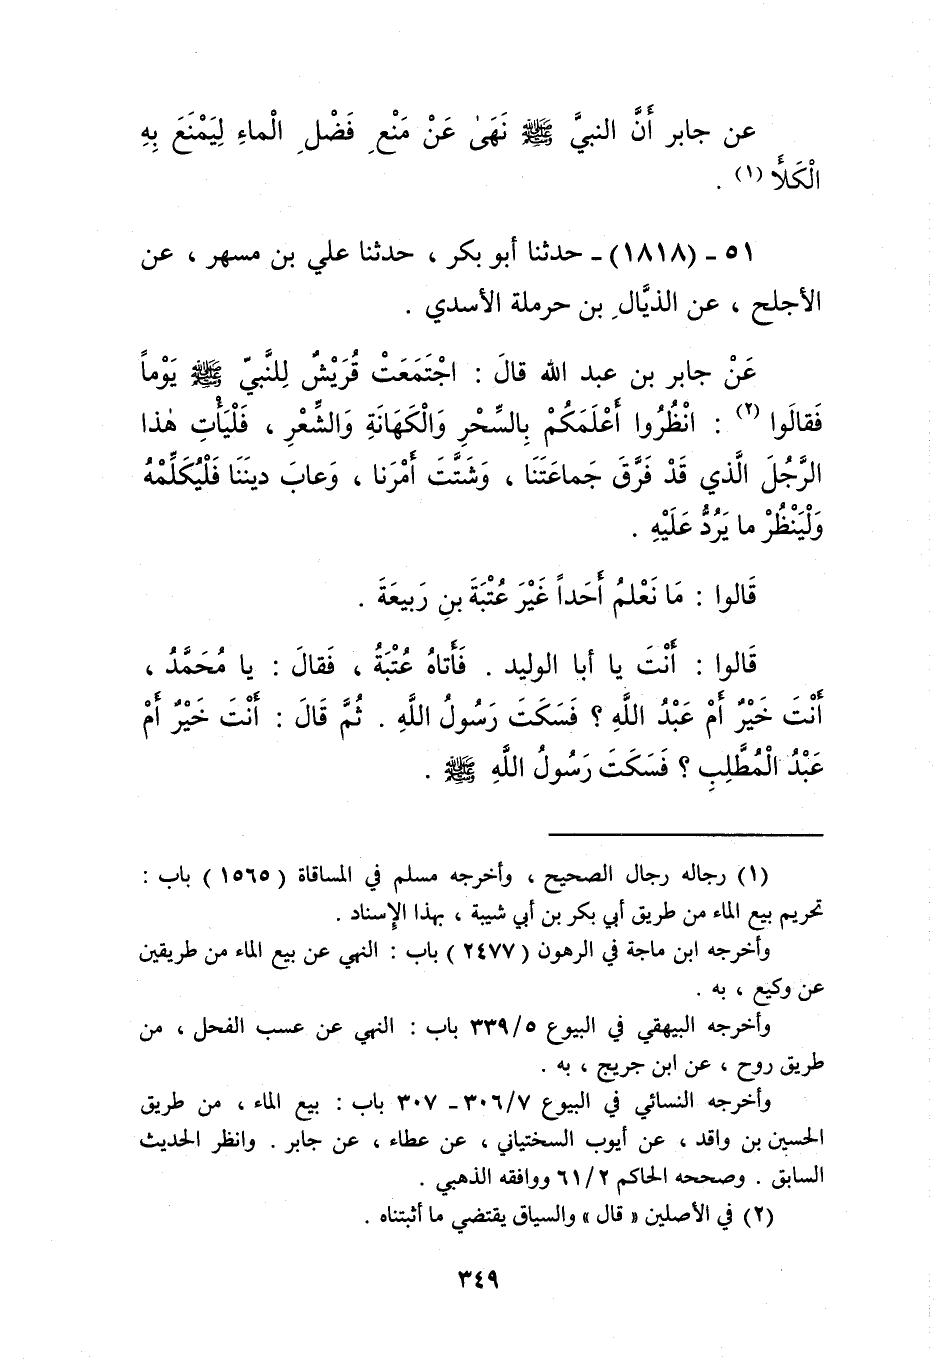 عن جابر أَنَّ النبيَّ ﷺ نَهَىٰ عَنْ مَنْعِ فَضْلِ الْماءِ لِيَمْنَعَ بِهِ
الْكَلَأَ (١) .
٥١ - (١٨١٨) - حدثنا أبو بكر ، حدثنا علي بن مسهر ، عن
الأجلح ، عن الذيَّالِ بن حرملة الأسدي .
عَنْ جابر بن عبد الله قالَ : اجْتَمَعَتْ قُرَيْشٌ لِلنَّبيِّ ﷺ يَوْماً
فَقالَوا (٢) : انْظُرُوا أَعْلَمَكُمْ بِالسِّحْرِ وَالْكَهَانَةِ وَالشِّعْرِ ، فَلْيَأْتِ هٰذا
الرَّجُلَ الَّذي قَدْ فَرَّقَ جَماعَتَنا ، وَشَتَّتَ أَمْرَنا ، وَعابَ دينَنَا فَلْيُكَلِّمْهُ
وَلْيَنْظُرْ ما يَرُدُّ عَلَيْهِ .
قَالوا : مَا نَعْلمُ أَحَداً غَيْرَ عُتْبَةَ بنِ رَبيعَةَ .
قَالوا : أَنْتَ يا أبا الوليد . فَأَتاهُ عُتْبَةُ ، فَقالَ : يا مُحَمَّدُ ،
أَنْتَ خَيْرٌ أَمْ عَبْدُ اللَّهِ ؟ فَسَكَتَ رَسُولُ اللَّهِ . ثُمَّ قَالَ : أَنْتَ خَيْرٌ أَمْ
عَبْدُ الْمُطَّلِبِ ؟ فَسَكَتَ رَسُولُ اللَّهِ ﷺ .
(١) رجاله رجال الصحيح ، وأخرجه مسلم في المساقاة ( ١٥٦٥ ) باب :
تحريم بيع الماء من طريق أبي بكر بن أبي شيبة ، بهذا الإسناد .
وأخرجه ابن ماجة في الرهون ( ٢٤٧٧ ) باب : النهي عن بيع الماء من طريقين
عن وكيع ، به .
وأخرجه البيهقي في البيوع ٣٣٩/٥ باب : النهي عن عسب الفحل ، من
طريق روح ، عن ابن جريج ، به .
وأخرجه النسائي في البيوع ٣٠٦/٧ - ٣٠٧ باب : بيع الماء ، من طريق
الحسين بن واقد ، عن أيوب السختياني ، عن عطاء ، عن جابر . وانظر الحديث
السابق . وصححه الحاكم ٦١/٢ ووافقه الذهبي .
(٢) في الأصلين « قال » والسياق يقتضي ما أثبتناه .
٣٤٩